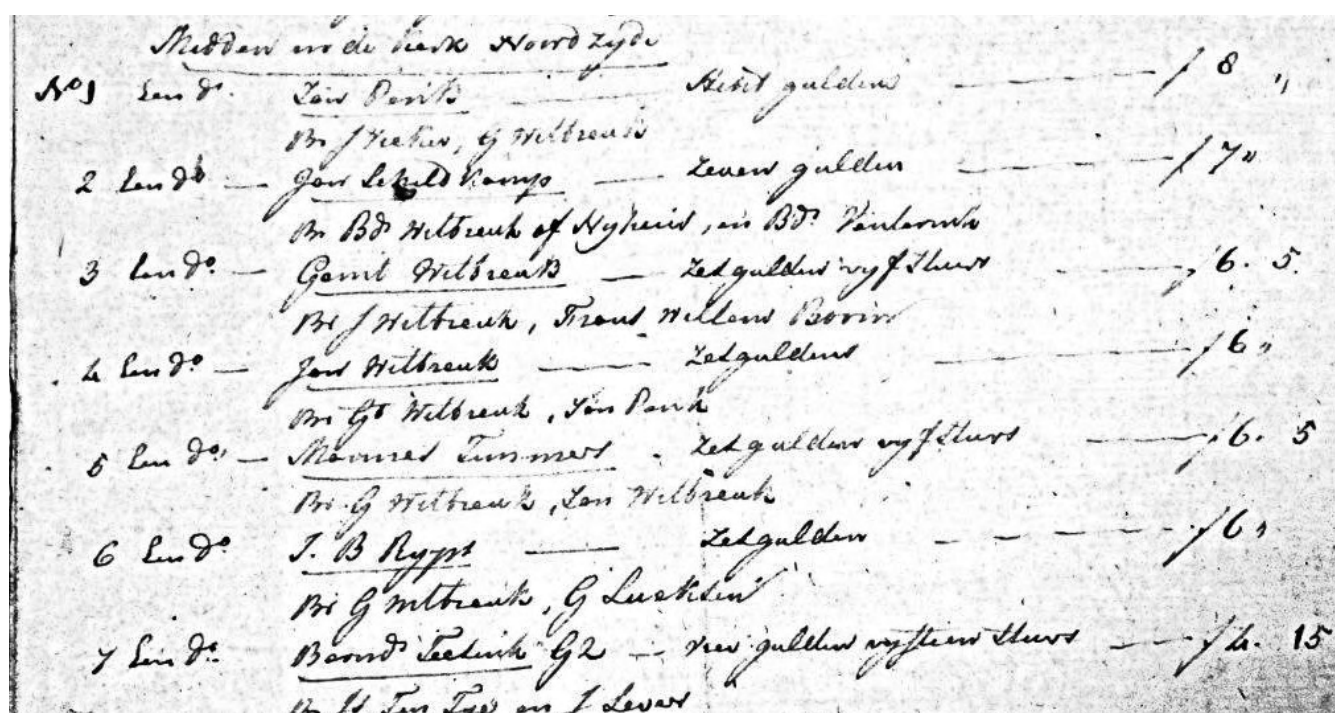 Midden in de kerk Noord Zyde
No 1 Een do. Jan Penk — Acht gulden — f 8 "
Br J , G Wilbreuk
2 Een do — Jan Schildkamp — Zeven gulden — f 7 "
Br Bd Wilbreuk of Nyhuis, en Bd.
3 Een do. — Gerrit Wilbreuk — Zes gulden vyf Stuvs — f 6. 5.
Br J Wilbreuk, Frans Willem
4 Een do — Jan Wilbreuk — Zes guldens — f 6 "
Br Gt Wilbreuk, Jan Penk
5 Een do. — Timmers . Zes gulden vyf Stuvs — f 6. 5
Br G Wilbreuk, Jan Wilbreuk
6 Een do J. B Rypst — Zes gulden — f 6 "
Br G Wilbreuk, G Lucksen
7 Een do. Barend Teetink G2 — vier gulden vyftien Stuvs — f 4. 15
Br en J Lever